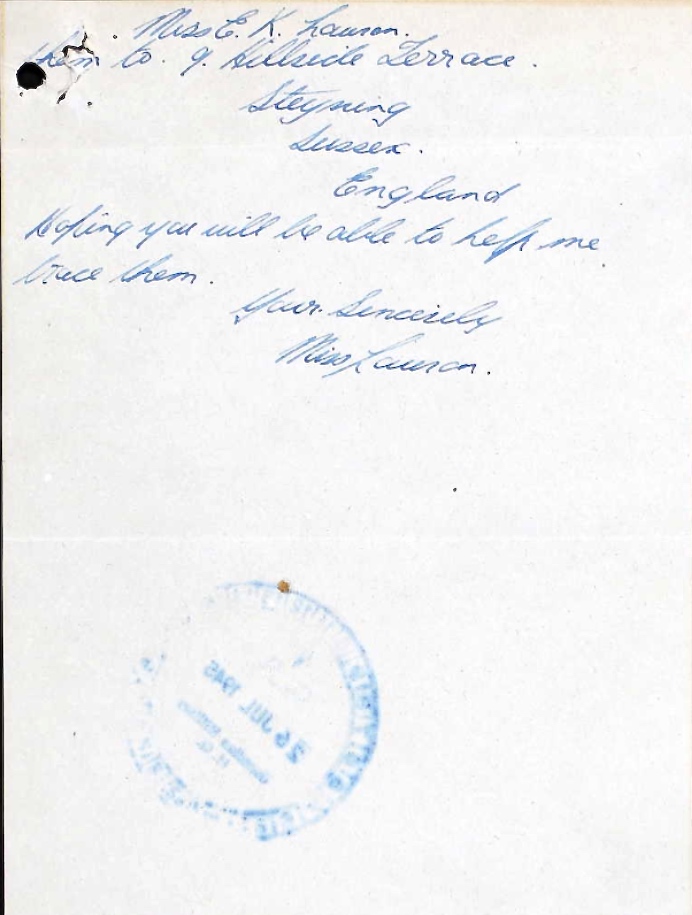 Miss E. K. Lawson.
them to. 9. Hillside Terrace.
Steyning
Sussex.
England
Hoping you will be able to help me
trace them.
Yours Sincerely
Miss Lawson.
26 JUL 1945